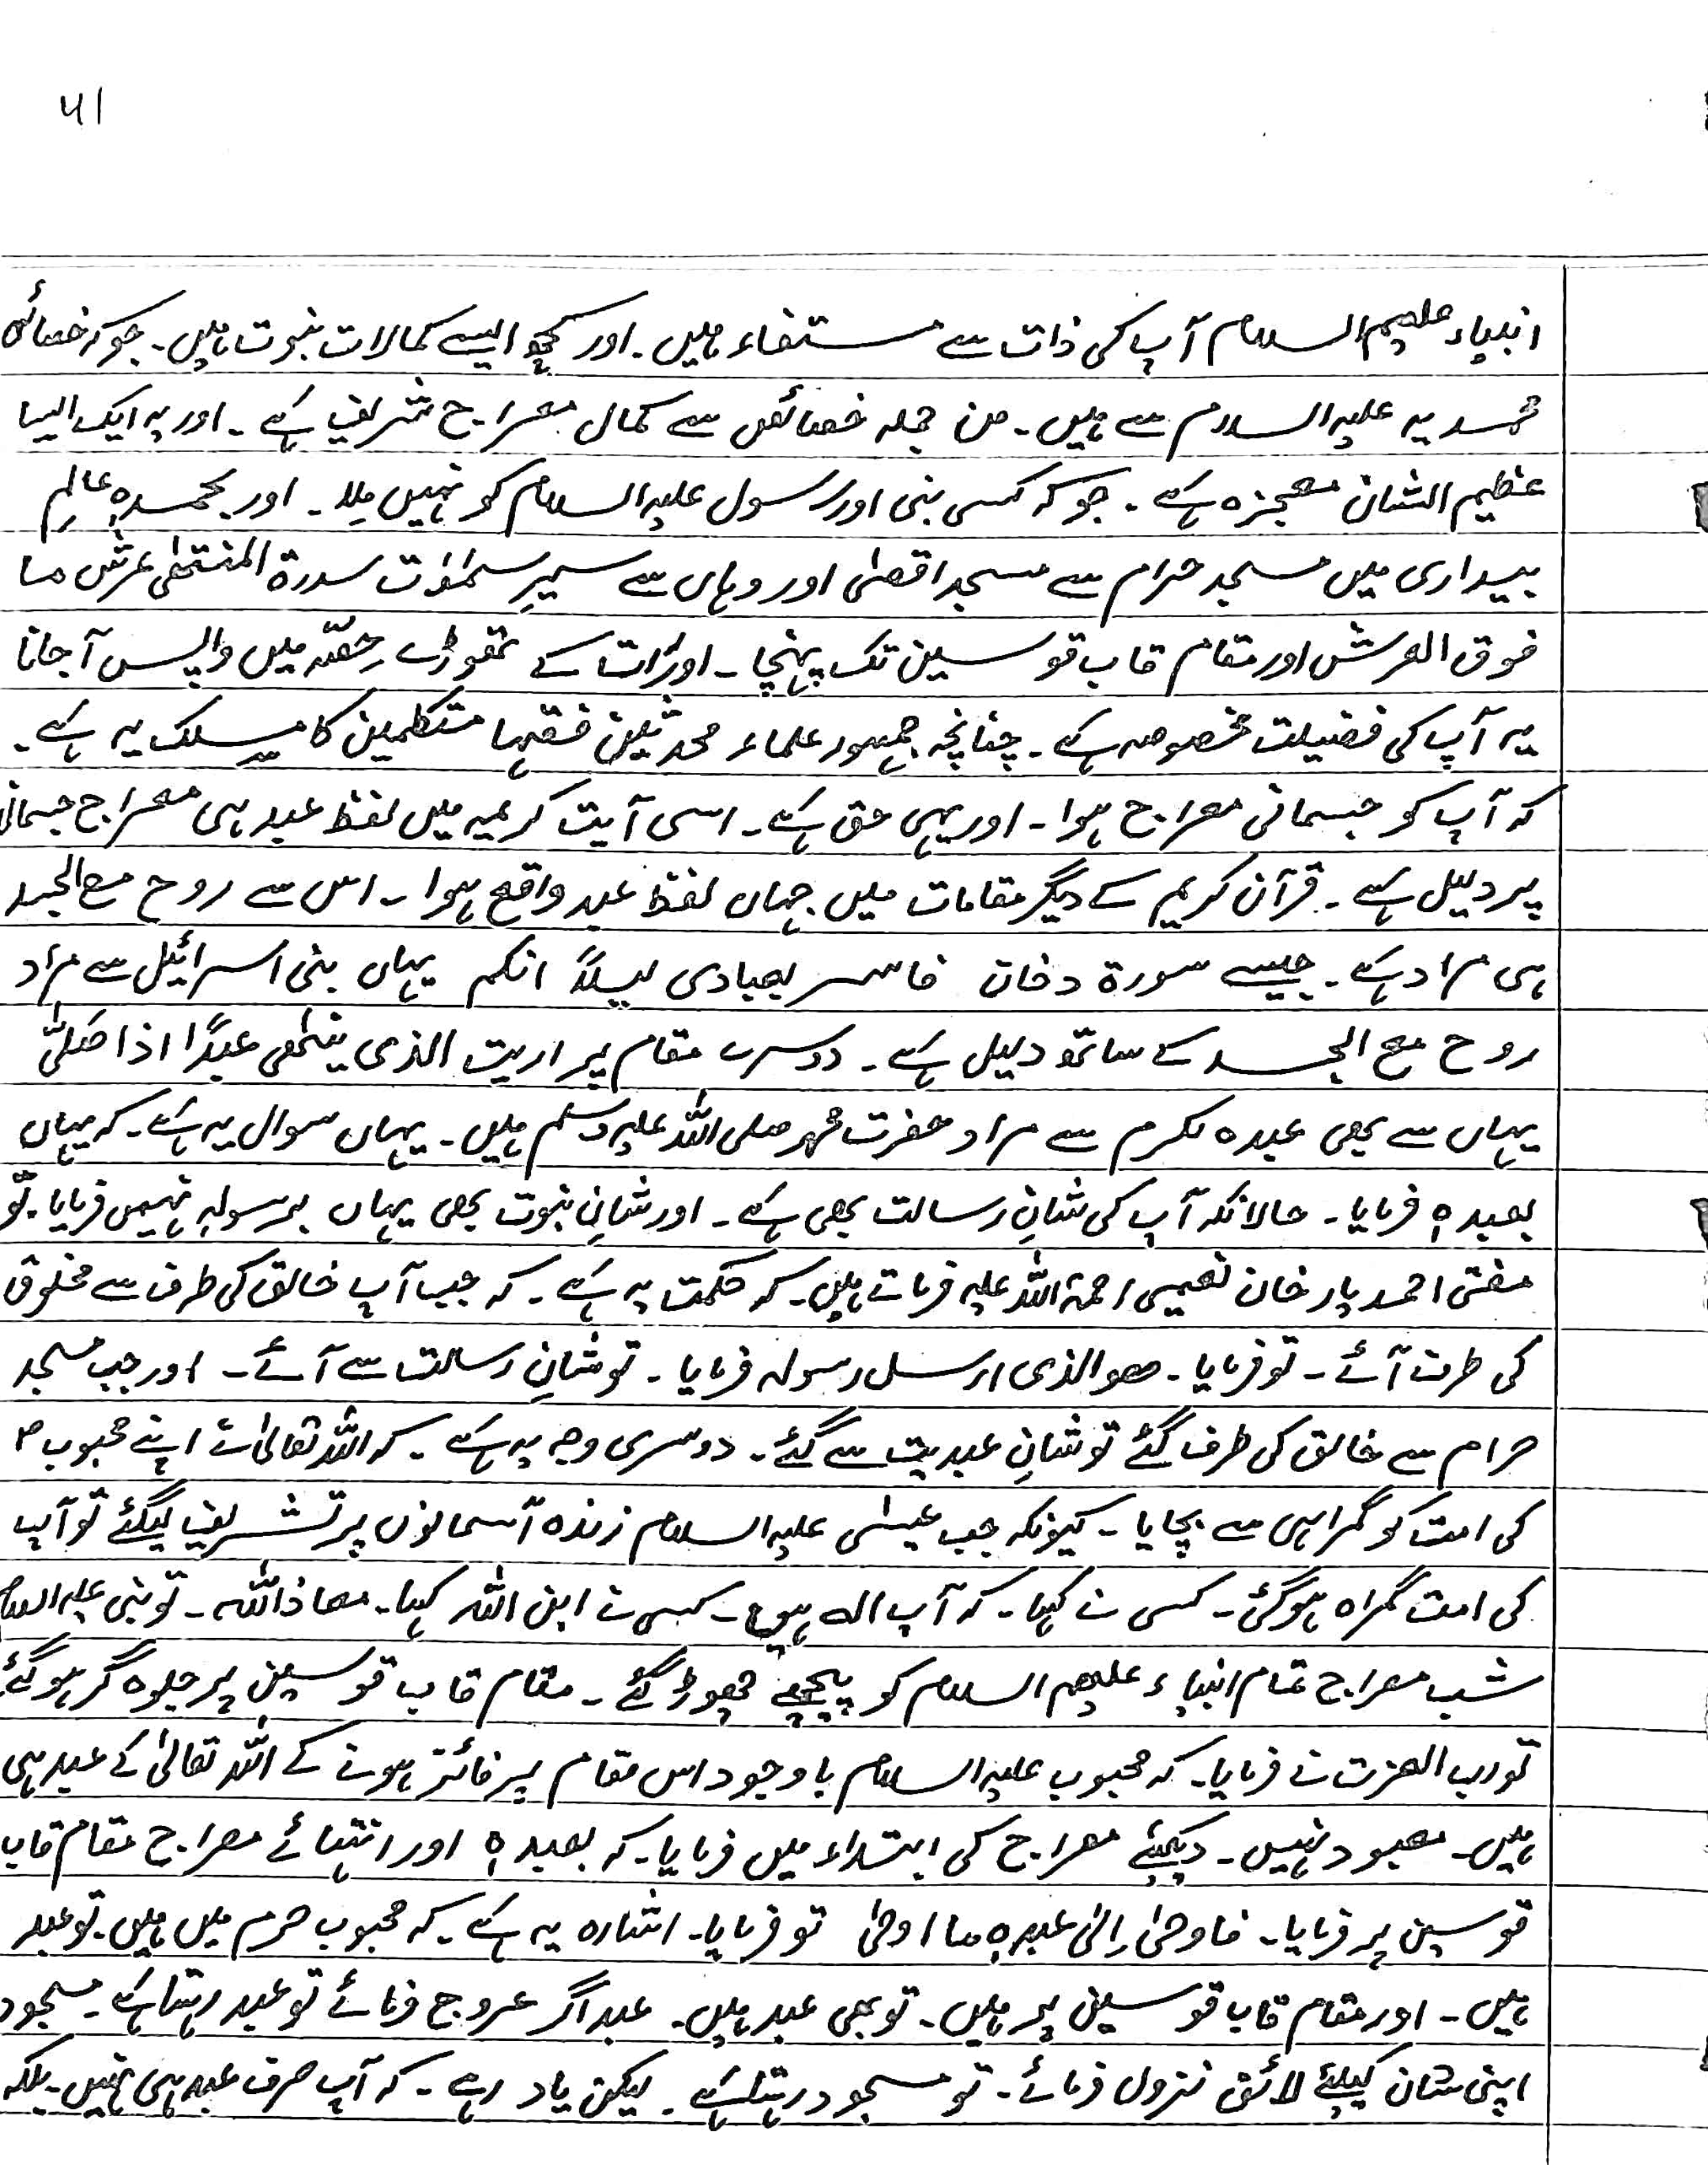 ۴۱
انبیاء علیہم السلام آپ کی ذات سے مستفاء ہیں۔ اور کچھ ایسے کمالات نبوت ہیں۔ جو کہ خصائص
محمدیہ علیہ السلام سے ہیں۔ من جملہ خصائص سے کمال معراج شریف ہے۔ اور یہ ایک ایسا
عظیم الشان معجزہ ہے۔ جو کہ کسی نبی اور رسول علیہ السلام کو نہیں مِلا۔ اور بجسدہٖ عالمِ
بیداری میں مسجد حرام سے مسجد اقصٰی اور وہاں سے سیرِ سمٰوٰت سدرۃ المنتھٰی عرش ما
فوق العرش اور مقام قاب قوسین تک پہنچا۔ اور رات کے تھوڑے حِصّہ میں واپس آجانا
یہ آپ کی فضیلت مخصوصہ ہے۔ چنانچہ جمہور علماء محدثین فقہا متکلمین کا مسلک یہ ہے۔
کہ آپ کو جسمانی معراج ہوا۔ اور یہی حق ہے۔ اسی آیت کریمہ میں لفظ عبد ہی معراج جسمانی
پر دلیل ہے۔ قرآن کریم کے دیگر مقامات میں جہاں لفظ عبد واقع ہوا۔ اس سے روح مع الجسد
ہی مراد ہے۔ جیسے سورۃ دخان فاسر بعبادی لیلاً انکم یہاں بنی اسرائیل سے مراد
روح مع الجسد کے ساتھ دلیل ہے۔ دوسرے مقام پر اریت الذی ینھٰی عبدًا اذا صَلّٰی
یہاں سے بھی عبدہ مکرم سے مراد حضرت محمد صلی اللہ علیہ وسلم ہیں۔ یہاں سوال یہ ہے۔ کہ یہاں
بعبدہٖ فرمایا۔ حالانکہ آپ کی شانِ رسالت بھی ہے۔ اور شانِ نبوت بھی یہاں برسولہٖ نہیں فرمایا۔ تو
مفتی احمد یار خان نعیمی رحمۃ اللہ علیہ فرماتے ہیں۔ کہ حکمت یہ ہے۔ کہ جب آپ خالق کی طرف سے مخلوق
کی طرف آئے۔ تو فرمایا۔ ھو الذی ارسل رسولہ فرمایا۔ تو شانِ رسالت سے آئے۔ اور جب مسجد
حرام سے خالق کی طرف گئے تو شانِ عبدیت سے گئے۔ دوسری وجہ یہ ہے۔ کہ اللہ تعالیٰ نے اپنے محبوب ؐ
کی امت کو گمراہی سے بچایا۔ کیونکہ جب عیسٰی علیہ السلام زندہ آسمانوں پر تشریف لیگئے تو آپ
کی امت گمراہ ہوگئی۔ کسی نے کہا۔ کہ آپ الہ ہیں۔ کسی نے ابن اللہ کہا۔ معاذ اللہ۔ تو نبی علیہ السلام
شب معراج تمام انبیاء علیھم السلام کو پیچھے چھوڑ گئے۔ مقام قاب قوسین پر جلوہ گر ہو گئے۔
تو رب العزت نے فرمایا۔ کہ محبوب علیہ السلام باوجود اس مقام پر فائز ہونے کے اللہ تعالیٰ کے عبد ہی
ہیں۔ معبود نہیں۔ دیکھئے معراج کی ابتداء میں فرمایا۔ کہ بعبدہٖ اور انتہائے معراج مقام قاب
قوسین پر فرمایا۔ فاوحٰی اِلٰی عبدہٖ ما اوحٰی تو فرمایا۔ اشارہ یہ ہے۔ کہ محبوب حرم میں ہیں۔ تو عبد
ہیں۔ اور مقام قاب قوسین پر ہیں۔ تو بھی عبد ہیں۔ عبد اگر عروج فرمائے تو عبد رہتا ہے۔ مسجود
اپنی شان کیلئے لائق نزول فرمائے۔ تو مسجود رہتا ہے۔ لیکن یاد رہے۔ کہ آپ صرف عبد ہی نہیں۔ بلکہ